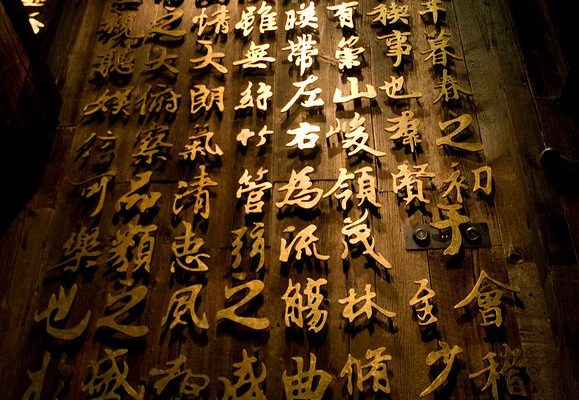 暮春之初于會稽
禊事也羣賢至少
有崇山峻領茂林脩
暎帶左右為流觴曲
雖無絲竹管弦之盛
情天朗氣清惠風和
之大俯察品類之盛
視聽娛信可樂也